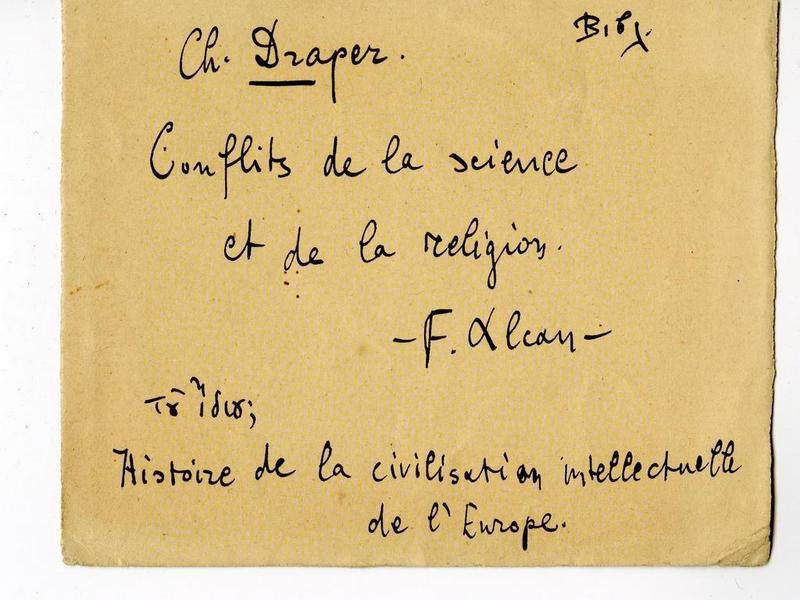 Βιβλ.
Ch. Draper.
Conflits de la science
et de la religion.
– F. Alcan –
τοῦ ἴδιου;
Histoire de la civilisation intellectuelle
de l'Europe.